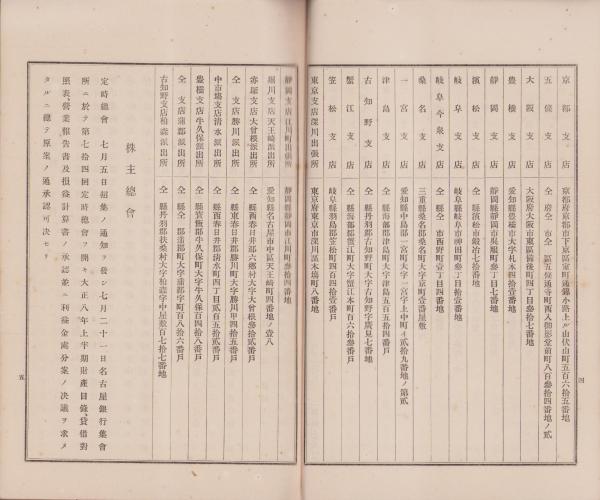 京都支店 京都府京都市下京區室町通綾小路上ル山伏山町五百六拾五番地
五條支店 仝府仝市仝區五條通寺町西入御影堂前町八百參拾四番地ノ貳
大阪支店 大阪府大阪市東區備後町四丁目參拾七番地
豊橋支店 愛知縣豊橋市大字札木四拾壹番地
靜岡支店 靜岡縣靜岡市吳服町參丁目四番地
濱松支店 仝縣濱松市鍛冶七拾番地
岐阜支店 岐阜縣岐阜市神田町參丁目貳番地
岐阜今泉支店 仝縣仝市西野町壹丁目參番地
桑名支店 三重縣桑名郡桑名町大字京町壹番屋敷
一宮支店 愛知縣中島郡一宮町大字一宮字上中町イ貳拾九番地ノ第貳
津島支店 仝縣海部郡津島町大字津島五百五拾四番戸
古知野支店 仝縣丹羽郡古知野町大字古知野字廣見七番地
蟹江支店 仝縣海部郡蟹江町大字蟹江本町百六拾參番戸
笠松支店 岐阜縣羽島郡笠松町四百四番戸
東京支店深川出張所 東京府東京市深川區木場町八番地
四
靜岡支店江川町出張所 靜岡縣靜岡市江川町參拾四番地
堀川支店天王崎派出所 愛知縣名古屋市中區天王崎町四番地ノ壹八
赤塚支店大曾根派出所 仝縣西春日井郡六郷村大字大曾根參拾貳番戸
仝支店勝川派出所 仝縣東春日井郡勝川町大字勝川甲四拾五番戸
中市場支店清水派出所 仝縣西春日井郡清水町四丁目貳百五拾貳番戸
豊橋支店牛久保派出所 仝縣寶飯郡牛久保町大字牛久保百四拾八番戸
仝支店蒲郡派出所 仝縣仝郡蒲郡町大字蒲郡字町百八拾六番戸
古知野支店柏森派出所 仝縣丹羽郡扶桑村大字柏森字中屋敷百七拾七番地
株主總會
定時總會 七月五日招集ノ通知ヲ發シ七月二十一日名古屋銀行集會
所ニ於テ第七拾四回定時總會ヲ開キ大正八年上半期財產目錄、貸借對
照表、營業報告書及損益計算書ノ承認並ニ利益金處分案ノ決議ヲ求メ
タルニ總テ原案ノ通承認可決セリ
五